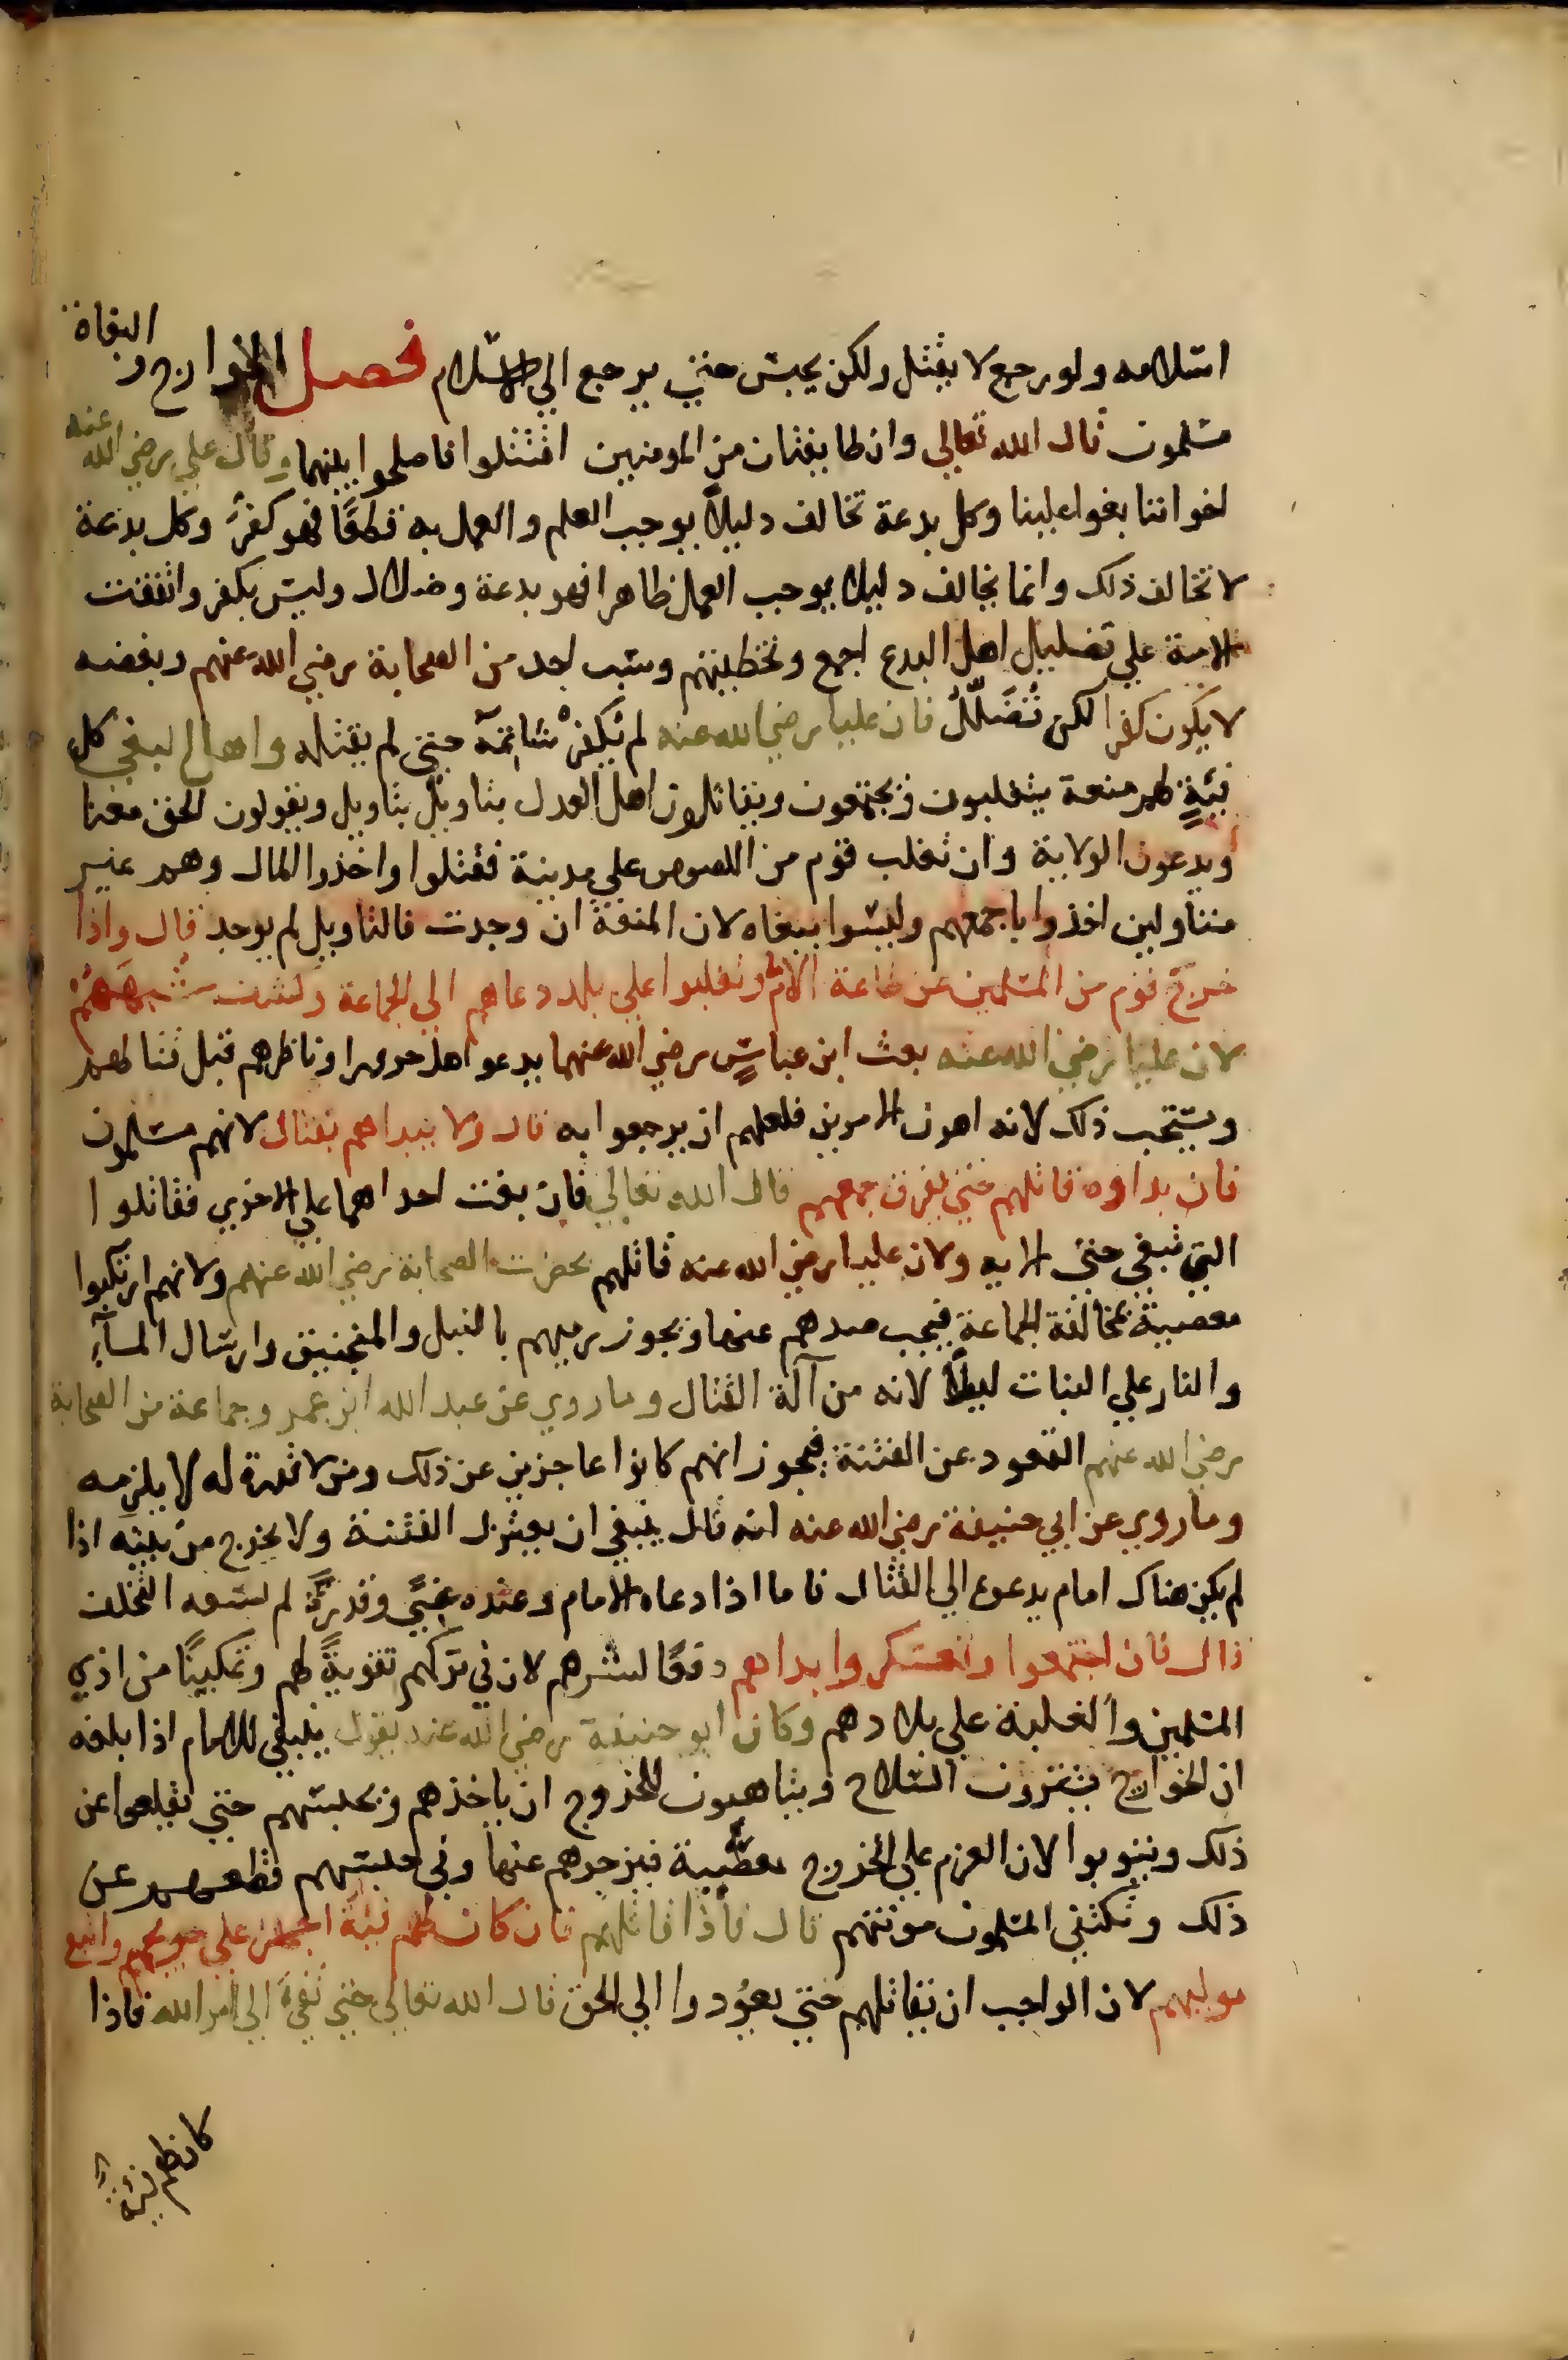 اسلامه ولو رجع لا يقتل ولكن يحبس حتى يرجع الي الاسلام فصل الخوارج والبغاة
مسلمون قال الله تعالي وان طايفتان من المومنين اقتتلوا فاصلحوا بينهما وقال علي رضي الله عنه
اخواننا بغوا علينا وكل بدعة تخالف دليلاً يوجب العلم والعمل به قطعًا فهو كفرٌ وكل بدعة
لا تخالف ذلك وانما يخالف دليلا يوجب العمل ظاهرا فهو بدعة وضلال وليس بكفر واتفقت
الامة علي تضليل اهل البدع اجمع وتخطيتهم وسب احد من الصحابة رضي الله عنهم وبغضه
لا يكون كفرا لكن تُضَلّلُ فان عليا رضي الله عنه لم يُكفرْ شاتمهُ حتى لم يقتله واهل البغي كل
فيةٍ لهم منعة يتغلبون ويجتمعون ويقاتلون اهل العدل بتاويل بتاويل ويقولون الحق معنا
ويدعون الولاية وان تغلب قوم من اللصوص علي مدينة فقتلوا واخذوا المال وهم غير
متناولين اخذوا باجمعهم وليسوا ببغاه لان المنعة ان وجدت فالتاويل لم يوجد قال واذا
خرج قوم من المسلمين عن طاعة الامام وتغلبوا علي بلد دعاهم الي الجماعة وكشف شبههم
لان عليا رضي الله عنه بعث ابن عباسٍ رضي الله عنهما يدعو اهل حرورا وناظرهم قبل قتالهم
ويستحب ذلك لانه اهون الامرين فلعلهم ان يرجعوا به قال ولا يبداهم بقتال لانهم مسلمون
فان بداوه قاتلهم حتى يفرق جمعهم قال الله تعالي فان بغت احداهما علي الاخري فقاتلوا
التي تبغي حتى الايه ولان عليا رضي الله عنه قاتلهم بحضرت الصحابة رضي الله عنهم ولانهم ارتكبوا
معصية بمخالفة الجماعة فيجب صدهم عنها ويجوز رميهم بالنبل والمنجنيق وارسال المآء
والنار علي البنات ليلاً لانه من آلة القتال وما روي عن عبد الله ابن عمر وجماعة من الصحابة
رضي الله عنهم القعود عن الفتنة فيجوز انهم كانوا عاجزين عن ذلك ومن لا قدرة له لا يلزمه
وما روي عن ابي حنيفة رضي الله عنه انه قال ينبغي ان يعتزل الفتنة ولا يخرج من بيته اذا
لم يكن هناك امام يدعوع الي القتال فاما اذا دعاه الامام وعنده غنىً وقدرةً لم يسعه التخلف
قال فان اجتمعوا وتعسكروا بداهم دفعًا لشرهم لان في تركهم تقويةً لهم وتمكينًا من اذي
المسلمين والغلبة علي بلادهم وكان ابو حنيفة رضي الله عنه يقول ينبغي للامام اذا بلغه
ان الخوارج يشترون السلاح ويتاهبون للخروج ان ياخذهم ويحبسهم حتى يقلعوا عن
ذلك ويتوبوا لان العزم علي الخروج معصية فيزجرهم عنها وفي حبسهم قطعهم عن
ذلك وتكتفي المسلمون مونتهم قال فاذا قاتلهم فان كان لهم فيةً اجهز علي جريحهم واتبع
موليهم لان الواجب ان يقاتلهم حتى يعوُدوا الي الحق قال الله تعالي حتى تفئَ الي امر الله فاذا
كان لهم فية